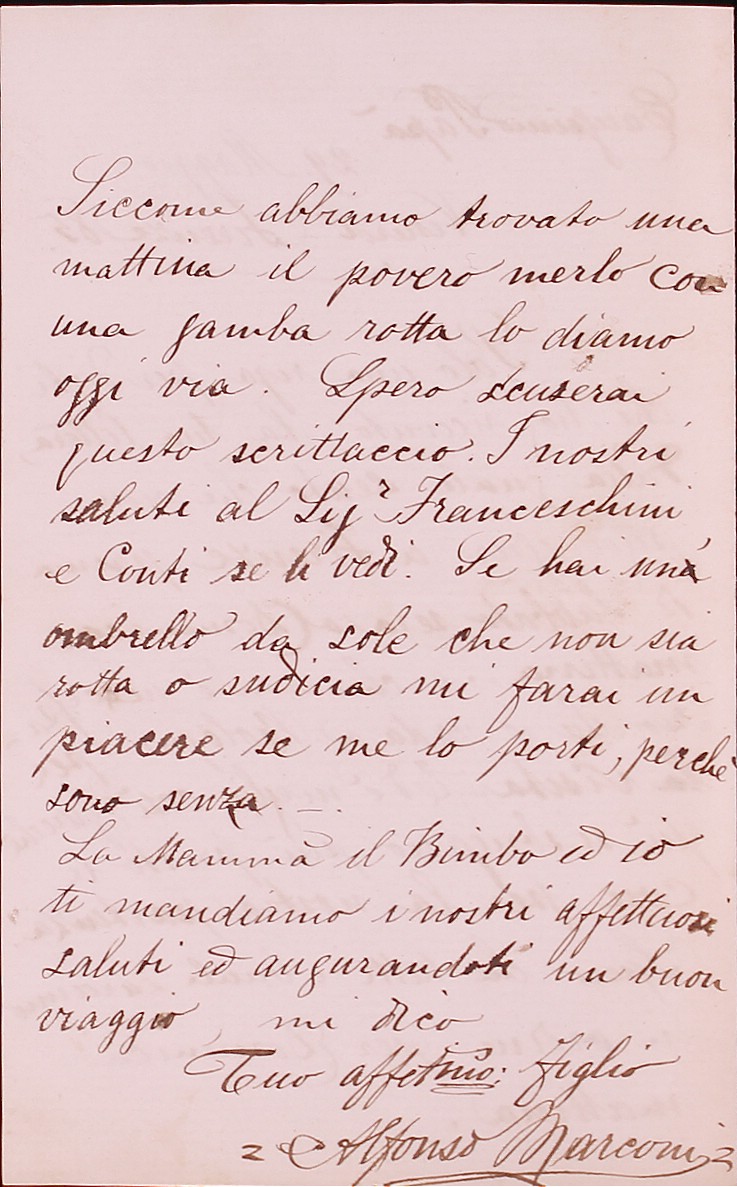 Siccome abbiamo trovato una
mattina il povero merlo con
una gamba rotta lo diamo
oggi via. Spero scuserai
questo scrittaccio. I nostri
saluti al Sigr Franceschini
e Conti se li vedi. Se hai una
ombrello da sole che non sia
rotta o sudicia mi farai un
piacere se me lo porti, perchè
sono senza. –.
La Mamma il Bimbo ed io
ti mandiamo i nostri affettuosi
saluti ed augurandoti un buon
viaggio, mi dico
Tuo affetmo: figlio
Alfonso Marconi